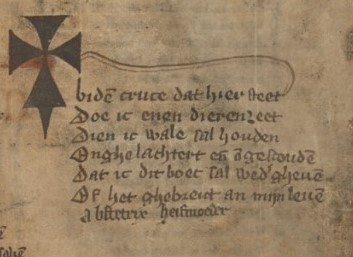 biden cruce dat hier steet
Doe ic enen dieren eet
Dien ic wale sal houden
Onghelachtert en̄ ōgescouden
Dat ic dit boec sal wed'gheuē
Of het ghebreict an mijn leuē
Abstetrix heifmoeder